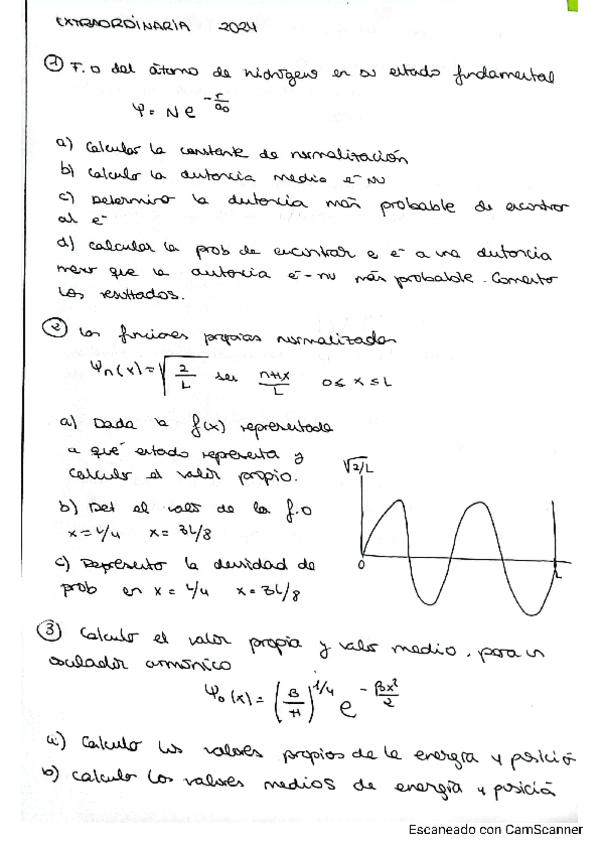 EXTRAORDINARIA 2024
① F.O del átomo de hidrógeno en su estado fundamental
ψ = N e^{-r/a0}
a) Calcular la constante de normalización
b) Calcula la distancia media e- nu
c) Determina la distancia más probable de encontrar
al e-
d) calcular la prob de encontrar e e- a una distancia
menor que la distancia e- - nu más probable. Comenta
los resultados.
② Las funciones propias normalizadas
ψn(x) = √(2/L) sen nπx/L 0 ≤ x ≤ L
a) Dada la f(x) representada
a qué estado representa y
calcula el valor propio.
√2/L
b) Det el valor de la f.o
x = L/4 x = 3L/8
0 L
c) Representa la densidad de
prob en x = L/4 x = 3L/8
③ Calcula el valor propio y valor medio, para un
oscilador armónico
ψ0(x) = (β/π)^{1/4} e^{-βx²/2}
a) Calcula los valores propios de la energía y posició
b) Calcula los valores medios de energía y posición
Escaneado con CamScanner